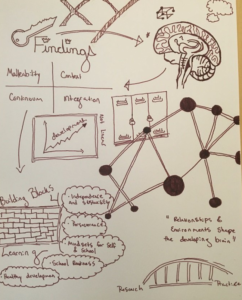 Findings
Malleability
Context
Continuum
Integration
development
Building Blocks
Independence
and
Perseverance
Mindsets for Self
& School
School Readiness
Healthy development
Learning
"Relationships &
Environments shape
the developing brain"
Research
Practice